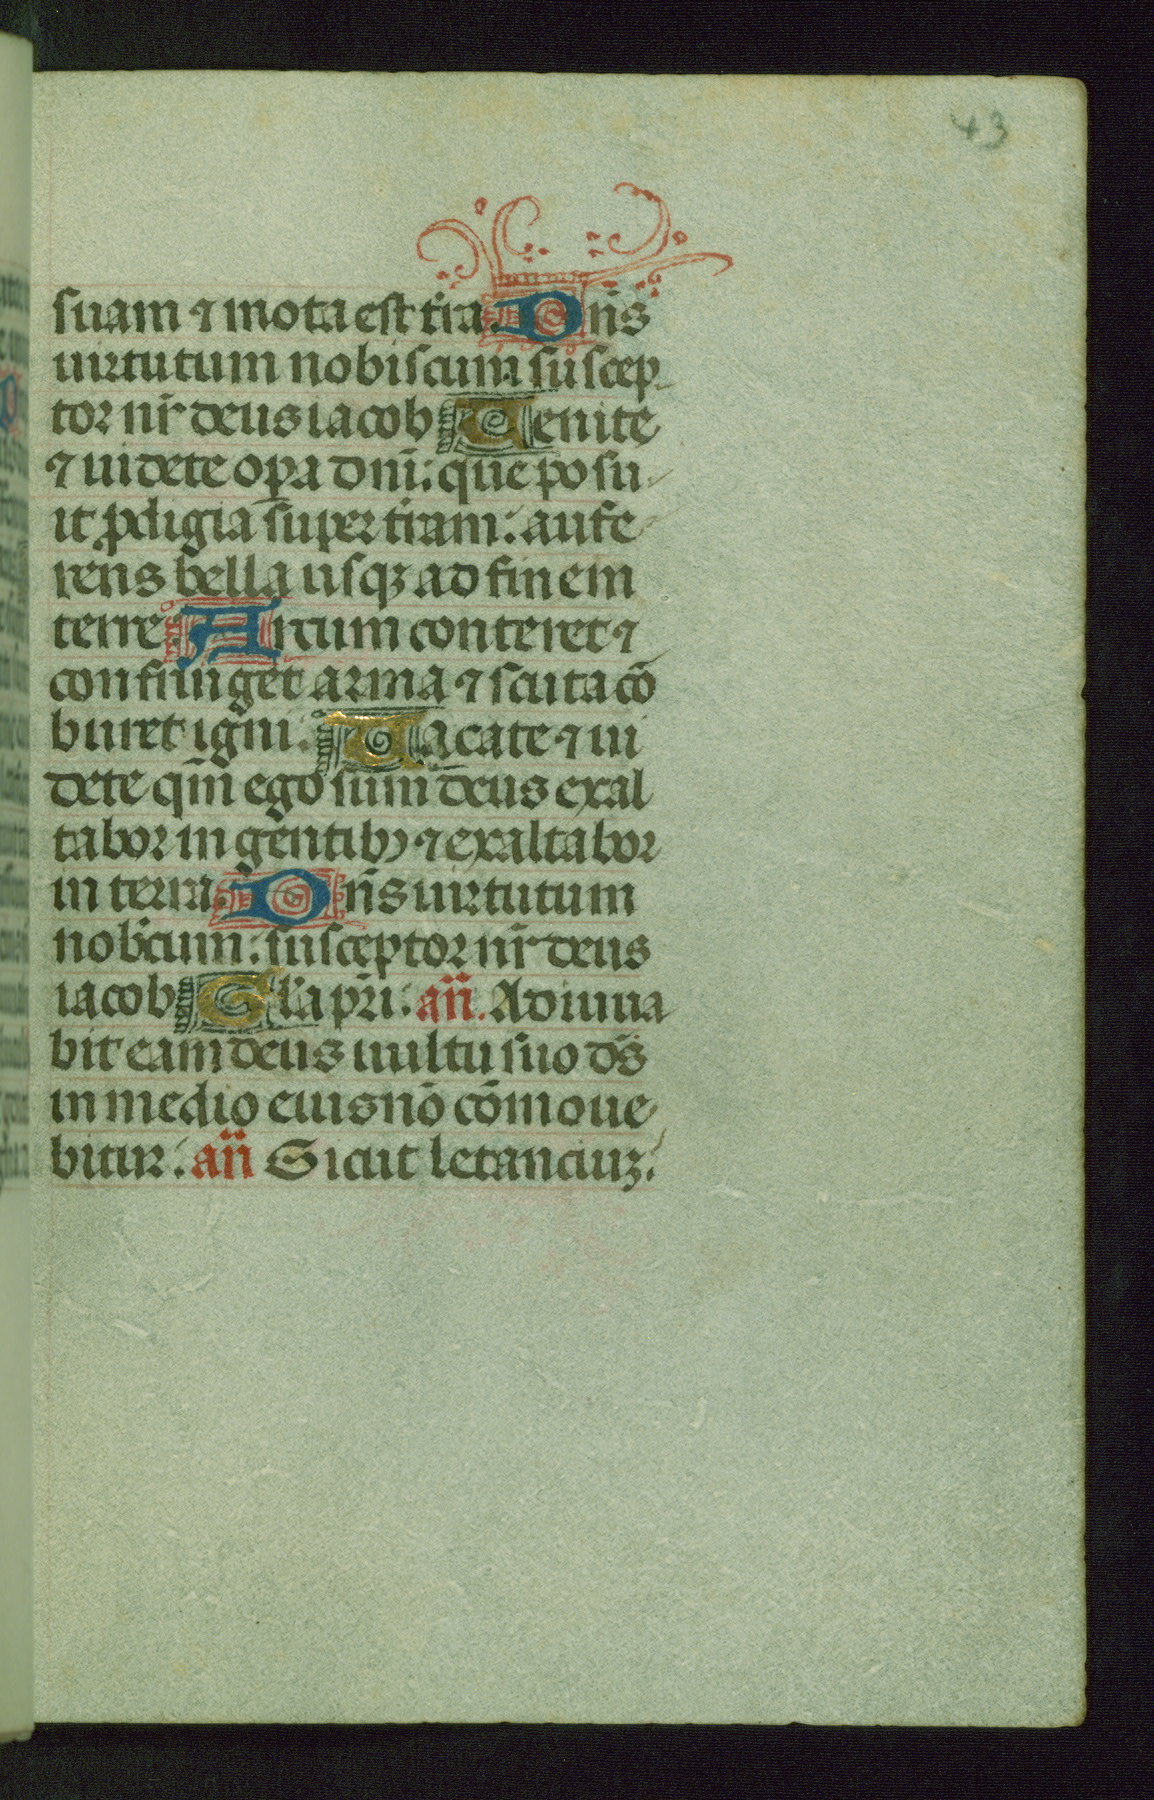 43
suam ⁊ mota est tr̄a. Dn̄s
uirtutum nobiscum suscep
tor nr̄ deus iacob Uenite
⁊ uidete oꝑa dn̄i: que posu
it ꝓdigia super tr̄am: aufe
rens bella usqꝫ ad finem
terre. Arcum conteret ⁊
confringet arma ⁊ scuta cō
buret igni. Uacate ⁊ ui
dete qm̄ ego sum deus exal
tabor in gentibꝫ ⁊ exaltabor
in terra. Dn̄s uirtutum
nobc̄um: susceptor nr̄ deus
iacob Gl̄a pr̄i: an̄. Adiuua
bit eam deus uultu suo ds̄
in medio eius nō cōmoue
bitur: an̄ Sicut letanciuꝫ: